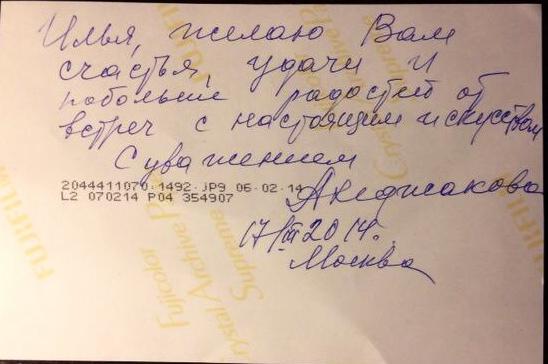 Илья, желаю Вам
счастья, удачи и
побольше радостей от
встреч с настоящим искусством
С уважением
2044411070-1492-JP9 06-02-14
L2 070214 P04 354907
Анджакова
17/III 2014г.
Москва
FUJIFILM
Fujicolor
Crystal Archive Paper
Supreme